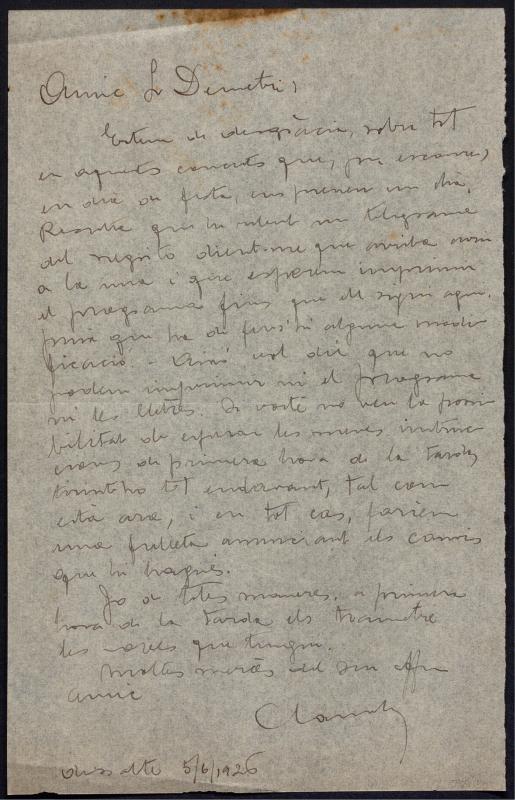 Amic Sr Demetri,
Estem de desgràcia, sobre tot
en aquests concerts que, per escaure,s
en dia de festa, ens prenen un dia.
Resulta que he rebut un telegrama
del dientme que arriba avui
a la una i que esperem imprimir
el programa fins que ell sigui aquí.
puix que ha de fer-s'hi alguna modi-
ficació. - Això vol dir que no
podem imprimir ni el programa
ni les lletres. Si vostè no veu la possi-
bilitat de esperar les meves instruc-
cions de primera hora de la tarda
tot endavant, tal com
està ara, i en tot cas, fariem
una fulleta anunciant els canvis
que hi hagués.
Jo de totes maneres, a primera
hora de la tarda els trametré
les noves que tingui.
Moltes mercès del seu affm
amic
dissabte 5/6/1926